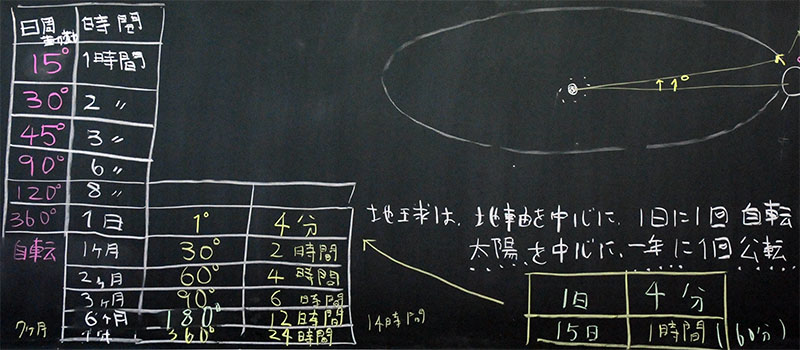 日周 時間
15° 1時間
30° 2 〃
45° 3 〃
90° 6 〃
120° 8 〃
360° 1日 1° 4分
自転 1ヶ月 30° 2時間
2ヶ月 60° 4時間
3ヶ月 90° 6時間
7ヶ月 6ヶ月 180° 12時間 14時間
360° 24時間
1°
地球は、地軸を中心に、1日に1回 自転
太陽を中心に、一年に1回公転
1日 4分
15日 1時間(60分)